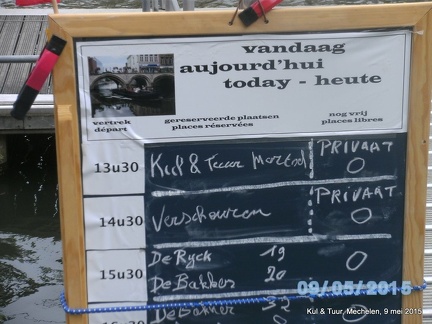 vandaag
aujourd'hui
today - heute
vertrek
départ
gereserveerde plaatsen
places réservées
nog vrij
places libres
13u30 Kul & Tuur Mortsel PRIVAAT 0
14u30 Verschouren PRIVAAT 0
15u30 De Ryck 19
De Bakker 20 0
De Bakker 32 0
09/05/2015
Kul & Tuur, Mechelen, 9 mei 2015